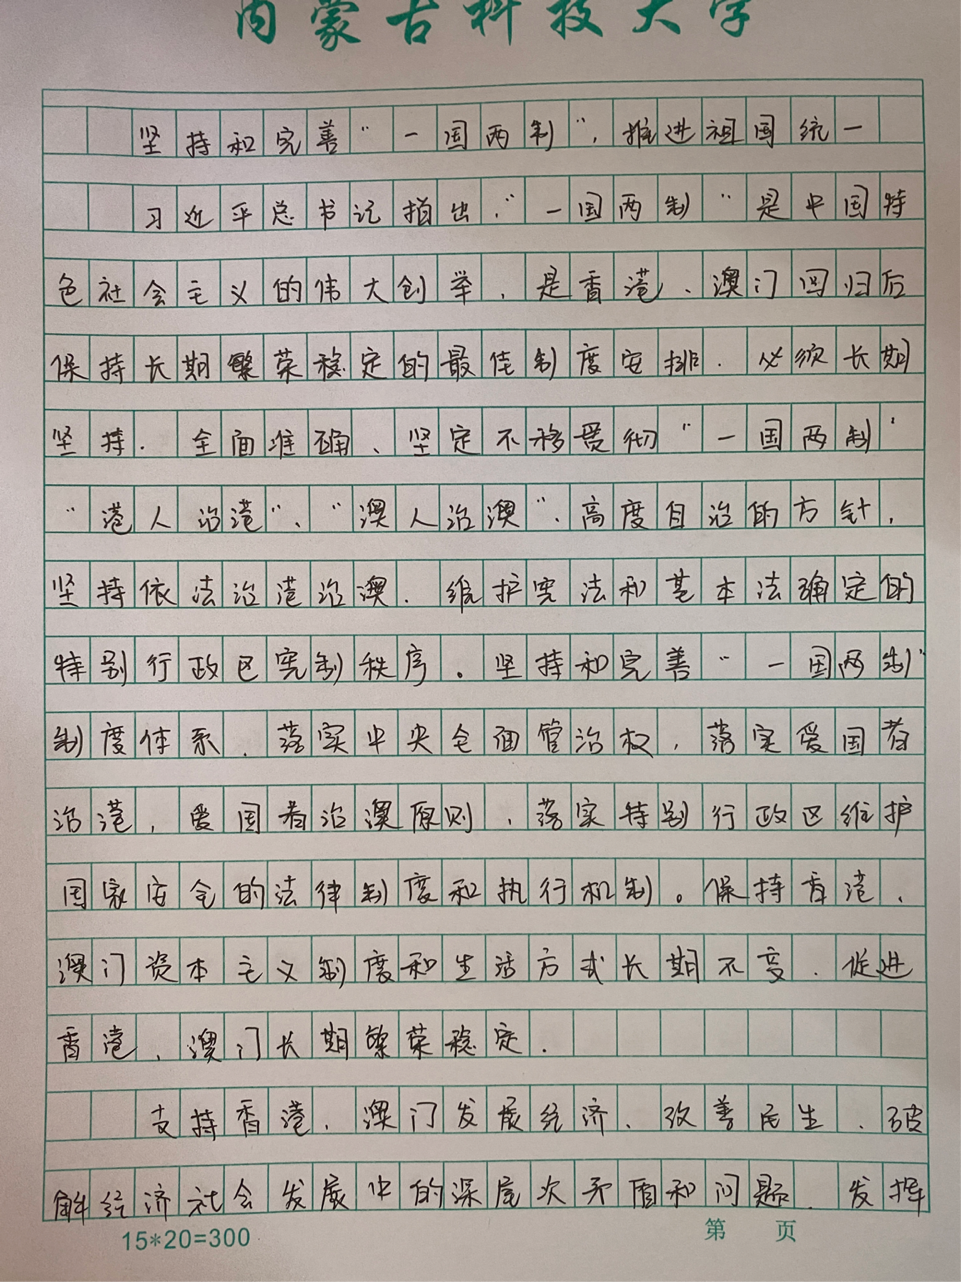 内蒙古科技大学
坚持和完善“一国两制”，推进祖国统一
习近平总书记指出，“一国两制”是中国特
色社会主义的伟大创举，是香港、澳门回归后
保持长期繁荣稳定的最佳制度安排．必须长期
坚持．全面准确、坚定不移贯彻“一国两制”
“港人治港”、“澳人治澳”、高度自治的方针，
坚持依法治港治澳．维护宪法和基本法确定的
特别行政区宪制秩序。坚持和完善“一国两制”
制度体系、落实中央全面管治权，落实爱国者
治港，爱国者治澳原则，落实特别行政区维护
国家安全的法律制度和执行机制。保持香港、
澳门资本主义制度和生活方式长期不变．促进
香港、澳门长期繁荣稳定．
支持香港、澳门发展经济、改善民生、破
解经济社会发展中的深层次矛盾和问题．发挥
15*20=300
第 页